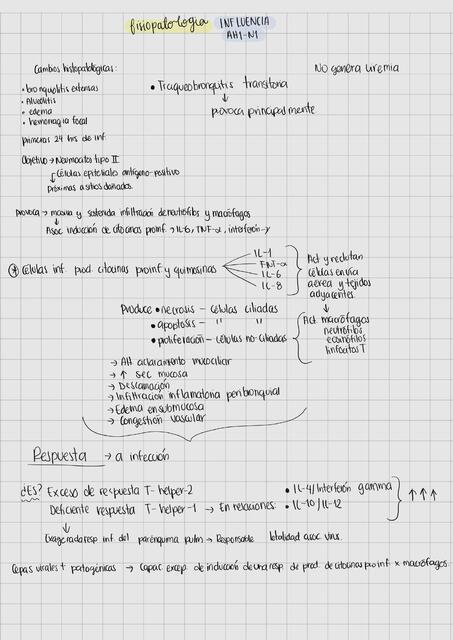 fisiopatología INFLUENCIA
AH1-N1
Cambios histopatológicos:
• bronquiolitis extensas
• Alveolitis
• edema
• hemorragia focal
primeras 24 hrs de inf.
• Traqueobronquitis transitoria
↓
provoca principalmente
No genera uremia
Objetivo → Neumocitos tipo II
↳ Células epiteliales antígeno-positivo
Próximas a sitios dañados.
Provoca → masiva y sostenida infiltración de neutrófilos y macrófagos
↳ Asoc inducción de citocinas proinf. → IL-6, TNF-α, interferón-γ
* Células inf. prod. citocinas proinf y quimosinas
IL-1
FNT-α
IL-6
IL-8
Act y reclutan
células en vía
aerea y tejidos
adyacentes.
↓
Act. macrófagos
neutrófilos
eosinófilos
linfocitos T
Produce • necrosis – células ciliadas
• apoptosis – " "
• proliferación – células no ciliadas
→ Alt aclaramiento mucociliar
→ ↑ sec mucosa
→ Descamación
→ Infiltración inflamatoria peribronquial
→ Edema en submucosa
→ Congestión vascular
Respuesta → a infección
¿ES? Exceso de respuesta T-helper-2
Deficiente respuesta T-helper-1 → En relaciones:
• IL-4/Interferón gamma
• IL-10/IL-12
↑↑↑
↓
Exagerada resp inf. del parénquima pulm → Responsable letalidad asoc. virus.
Cepas virales + patogénicas → Capac excep. de inducción de una resp de prod. de citocinas pro inf × macrófagos.